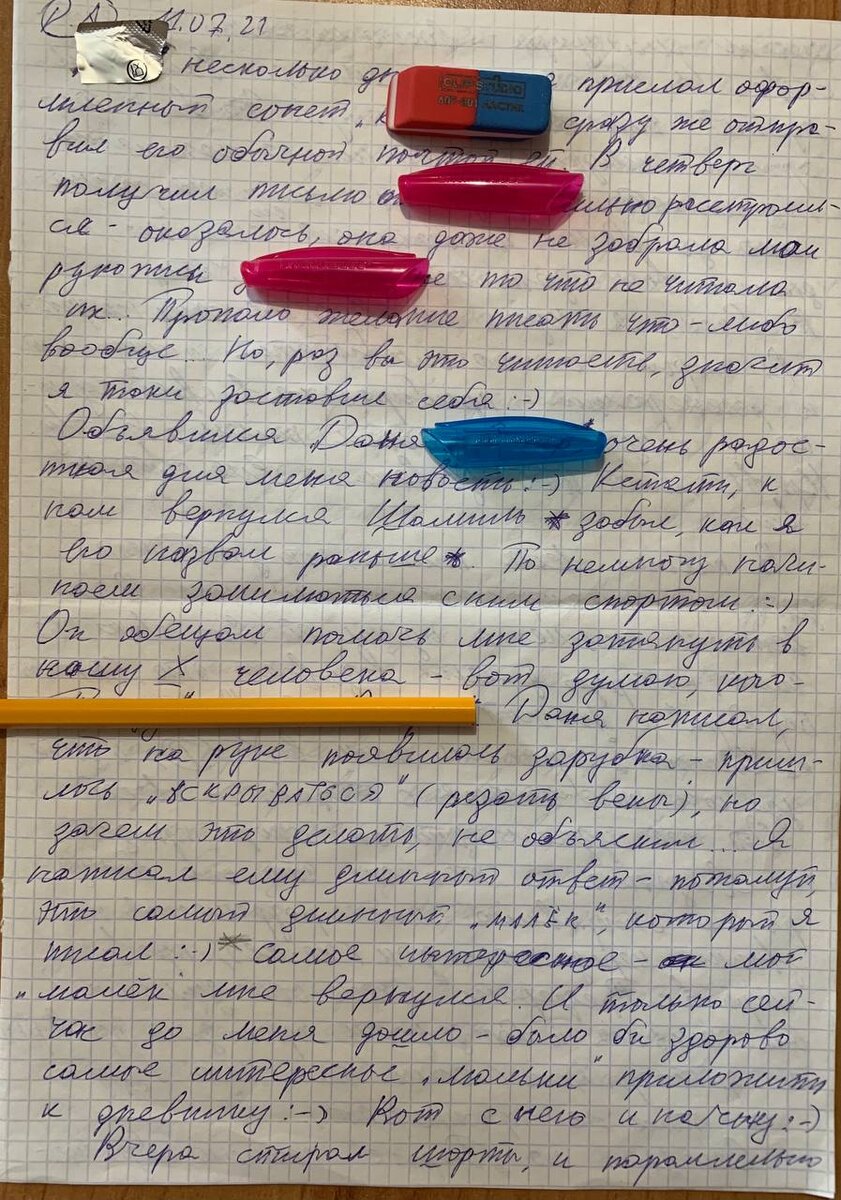 11.07.21
несколько дн прислал офор-
мленный сонет „к сразу же отпра-
вил его обычной почтой ей. В четверг
получил письмо о ильно расстроил-
ся - оказалось, она даже не забрала мои
рукописи е то что не читала
их... Пропало желание писать что-либо
вообще... Но, раз вы это читаете, значит
я таки заставил себя :-)
Объявился Даня очень радос-
тная для меня новость :-) Кстати, к
нам вернулся Шамиль * забыл, как я
его назвал раньше *. По немногу начи-
наем заниматься с ним спортом. :-)
Он обещал помочь мне затянуть в
нашу Х человека - вот думаю, кого-
Даня написал,
что на руке появилась зарубка - приш-
лось „ВСКРЫВАТЬСЯ" (резать вены), но
зачем это делать, не объяснил... Я
написал ему длинный ответ - пожалуй,
это самый длинный „МАЛЁК", который я
писал :-) * самое интересное - мой
„малёк" мне вернулся. И только сей-
час до меня дошло - было бы здорово
самые интересные „мальки" приложить
к дневнику :-) Вот с него и начну :-)
Вчера стирал шорты, и параллельно